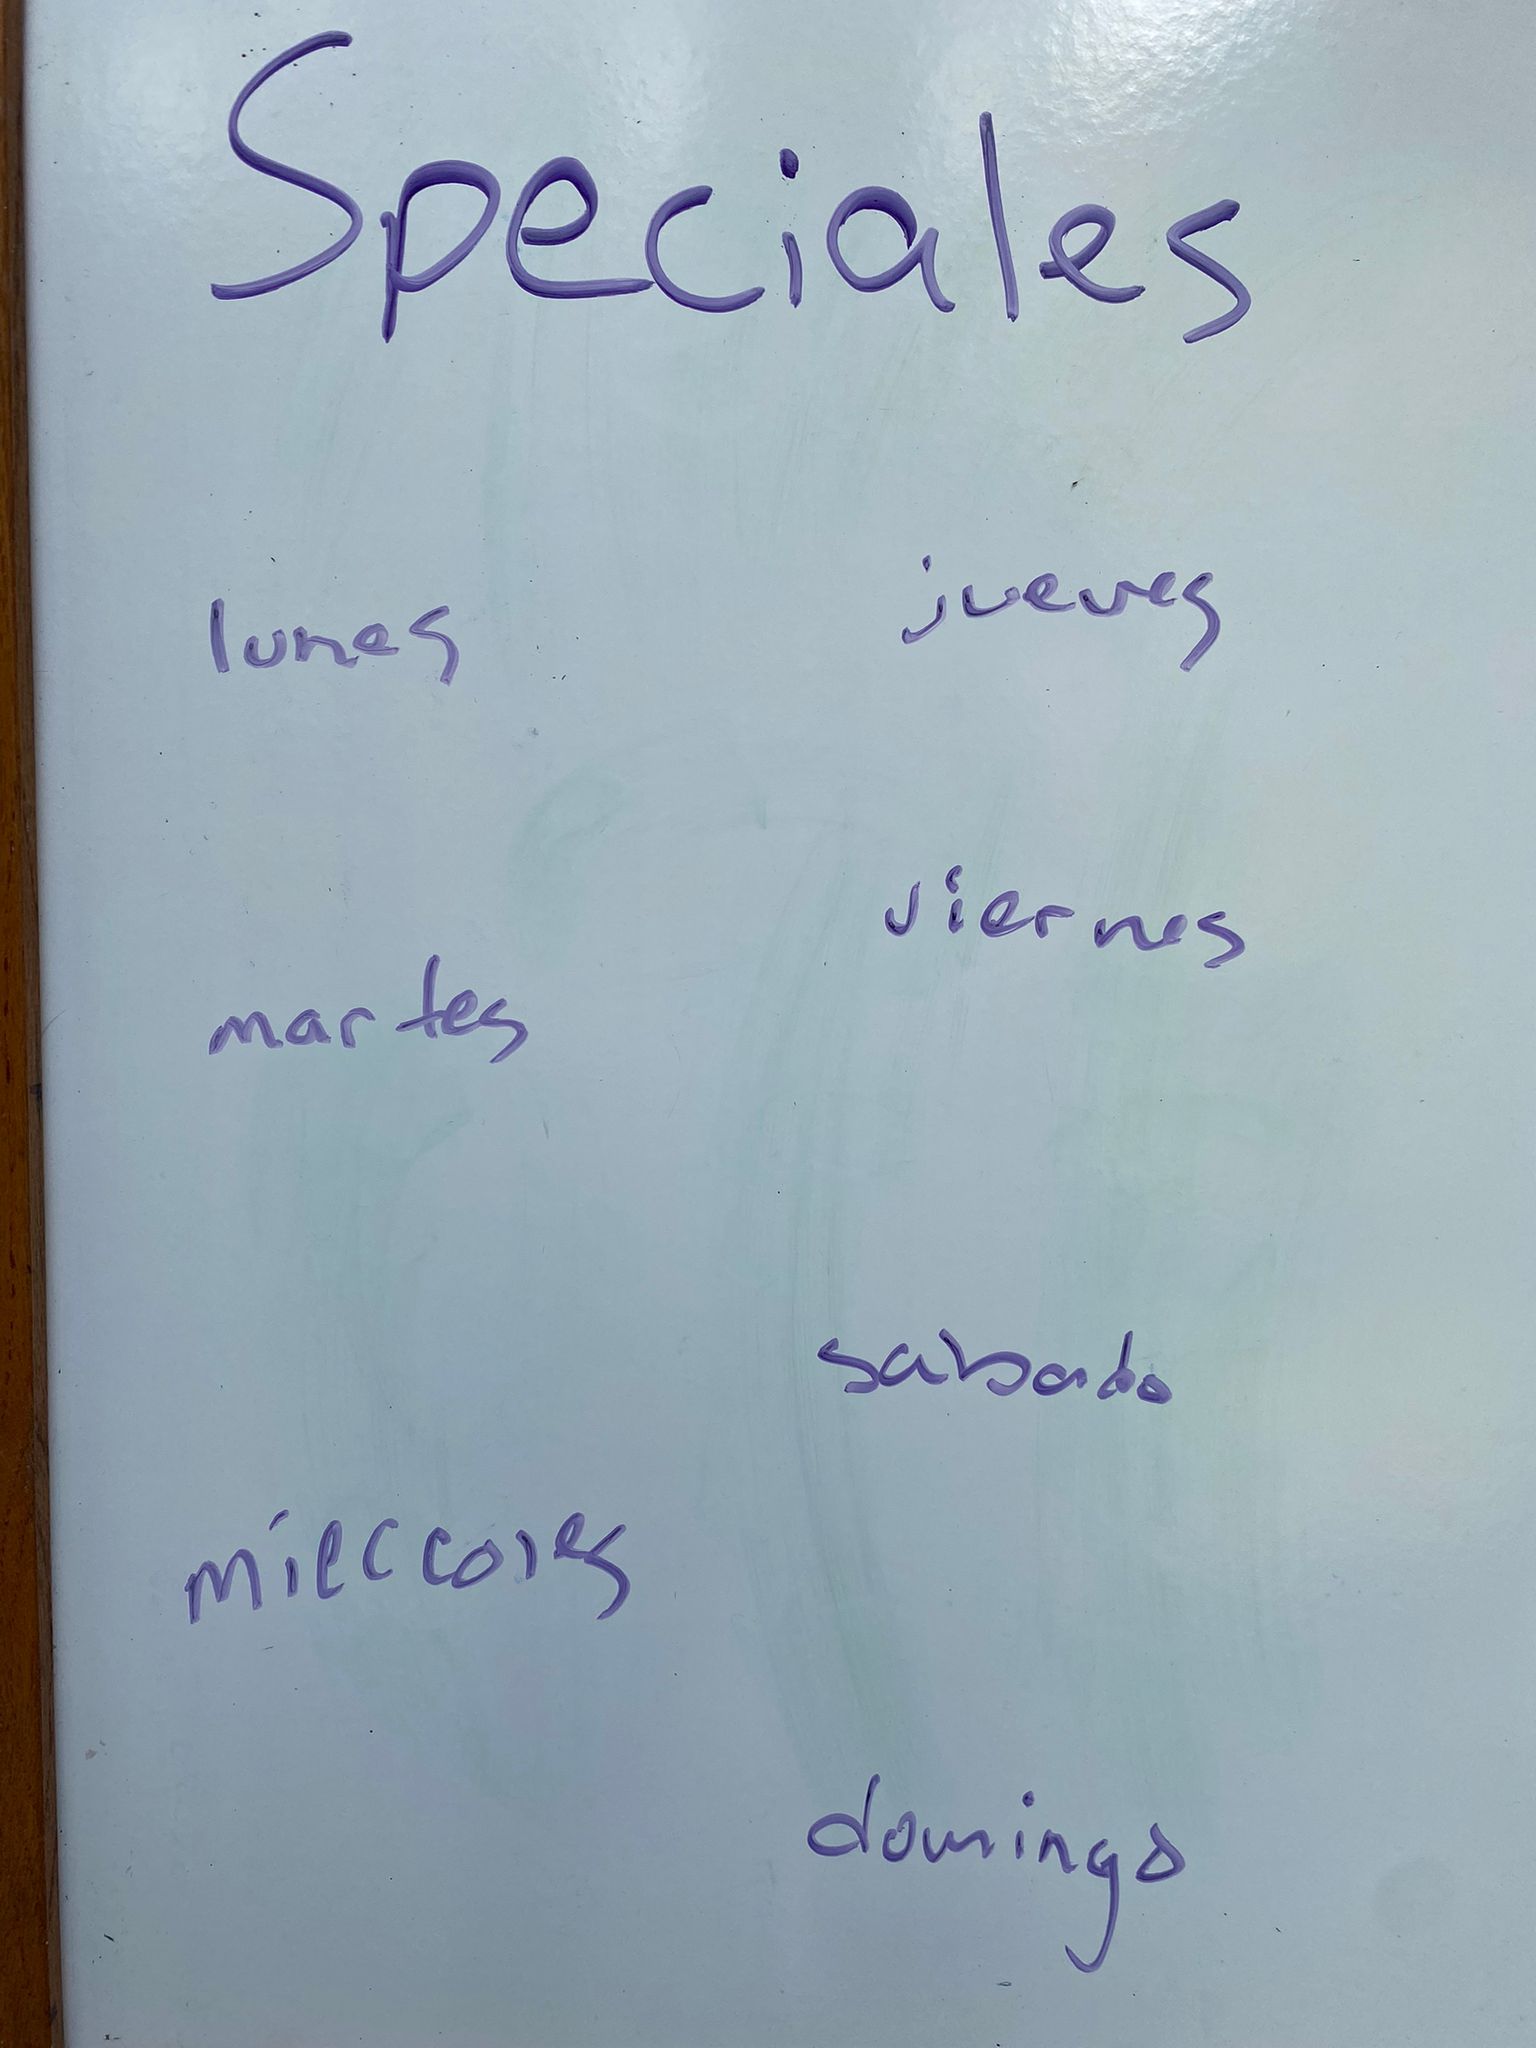 Speciales
lunes
martes
mierccoles
jueves
viernes
sabado
domingo